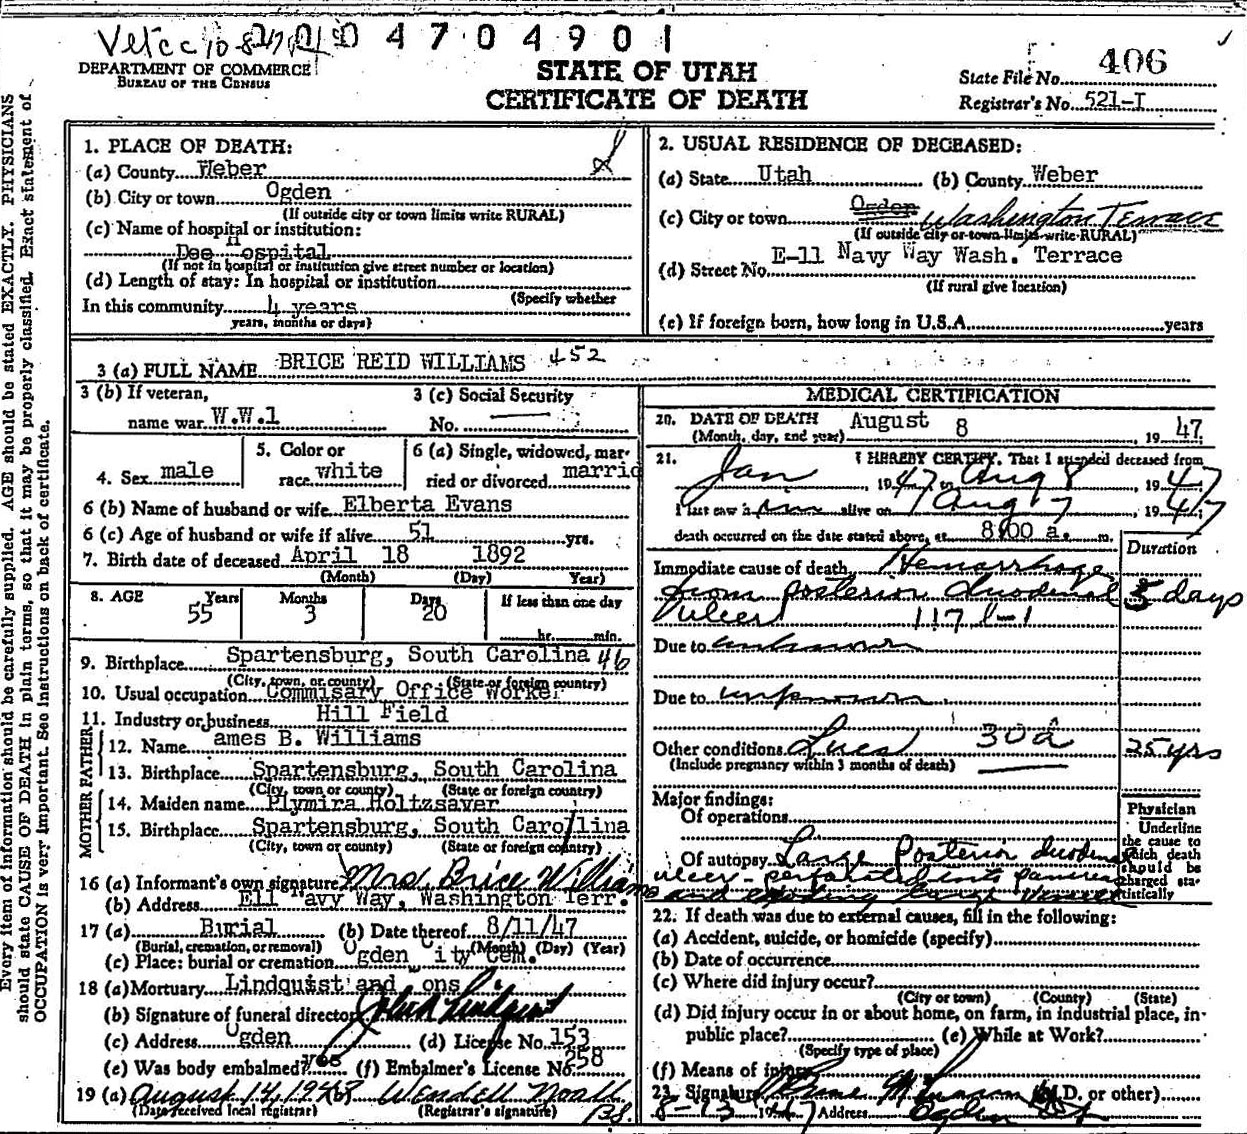 4 7 0 4 9 0 1
DEPARTMENT OF COMMERCE
BUREAU OF THE CENSUS
STATE OF UTAH
CERTIFICATE OF DEATH
State File No. 406
Registrar's No. 521-I
Every item of information should be carefully supplied. AGE should be stated EXACTLY. PHYSICIANS
should state CAUSE OF DEATH in plain terms, so that it may be properly classified. Exact statement of
OCCUPATION is very important. See instructions on back of certificate.
1. PLACE OF DEATH:
(a) County Weber
(b) City or town Ogden
(If outside city or town limits write RURAL)
(c) Name of hospital or institution:
Dee Hospital
(If not in hospital or institution give street number or location)
(d) Length of stay: In hospital or institution
(Specify whether
In this community 4 years
years, months or days)
2. USUAL RESIDENCE OF DECEASED:
(a) State Utah (b) County Weber
(c) City or town Ogden Washington Terrace
(If outside city or town limits write RURAL)
(d) Street No. E-11 Navy Way Wash. Terrace
(If rural give location)
(e) If foreign born, how long in U.S.A. years
3 (a) FULL NAME BRICE REID WILLIAMS 452
3 (b) If veteran,
name war W.W.1
3 (c) Social Security
No.
4. Sex male
5. Color or
race white
6 (a) Single, widowed, mar-
ried or divorced marrid
6 (b) Name of husband or wife Elberta Evans
6 (c) Age of husband or wife if alive 51 yrs.
7. Birth date of deceased April 18 1892
(Month) (Day) Year)
8. AGE Years Months Days If less than one day
55 3 20 hr. min.
9. Birthplace Spartensburg, South Carolina 46
(City, town, or county) (State or foreign country)
10. Usual occupation Commisary Office Worker
11. Industry or business Hill Field
FATHER
12. Name James B. Williams
13. Birthplace Spartensburg, South Carolina
(City, town or county) (State or foreign country)
MOTHER
14. Maiden name Plymira Holtzsaver
15. Birthplace Spartensburg, South Carollina
(City, town or county) (State or foreign country)
16 (a) Informant's own signature Mrs. Brice Williams
(b) Address E11 Navy Way, Washington Terr.
17 (a) Burial (b) Date thereof 8/11/47
(Burial, cremation, or removal) (Month) (Day) (Year)
(c) Place: burial or cremation Ogden City Cem.
18 (a) Mortuary Lindquist and Sons
(b) Signature of funeral director
(c) Address Ogden (d) License No. 153
(e) Was body embalmed? yes (f) Embalmer's License No. 258
19 (a) August 14, 1947 (b) Wendell Noall
(Date received local registrar) (Registrar's signature)
MEDICAL CERTIFICATION
20. DATE OF DEATH August 8, 1947
(Month, day, and year)
21. I HEREBY CERTIFY, That I attended deceased from
Jan, 1947 to Aug 8, 1947
I last saw him alive on Aug 7, 1947
death occurred on the date stated above, at 8:00 a. m.
Duration
Immediate cause of death Hemorrhage
from posterior duodenal 5 days
ulcer 117 b-1
Due to unknown
Due to unknown
Other conditions Lues 30a 25 yrs
(Include pregnancy within 3 months of death)
Major findings:
Of operations
Of autopsy Large Posterior duodenal
ulcer - perforated into pancreas
and eroding large vessel
Physician
Underline
the cause to
which death
should be
charged sta-
tistically
22. If death was due to external causes, fill in the following:
(a) Accident, suicide, or homicide (specify)
(b) Date of occurrence
(c) Where did injury occur?
(City or town) (County) (State)
(d) Did injury occur in or about home, on farm, in industrial place, in
public place? (e) While at Work?
(Specify type of place)
(f) Means of injury
23. Signature (M.D. or other)
8-13 1947 Address Ogden